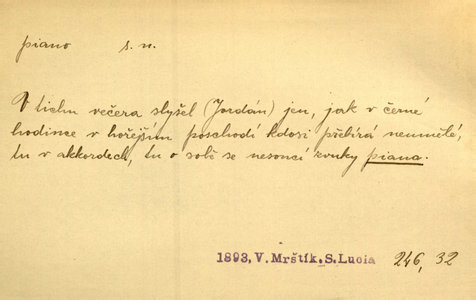 piano s. n.
V tichu večera slyšel (Jordán) jen, jak v černé
hodince v hořejším poschodí kdosi přebírá neumělé,
tu v akkordech, tu o sobě se nesoucí zvuky piana.
1893, V. Mrštík. S. Lucia 246, 32